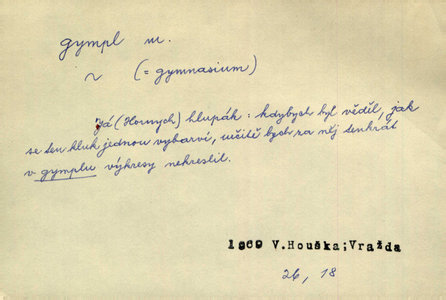 gympl m.
~ (= gymnasium)
Já (Hornych) hlupák: kdybych byl věděl, jak
se ten kluk jednou vybarví, určitě bych za něj tenkrát
v gymplu výkresy nekreslil.
1969 V.Houška;Vražda
26, 18